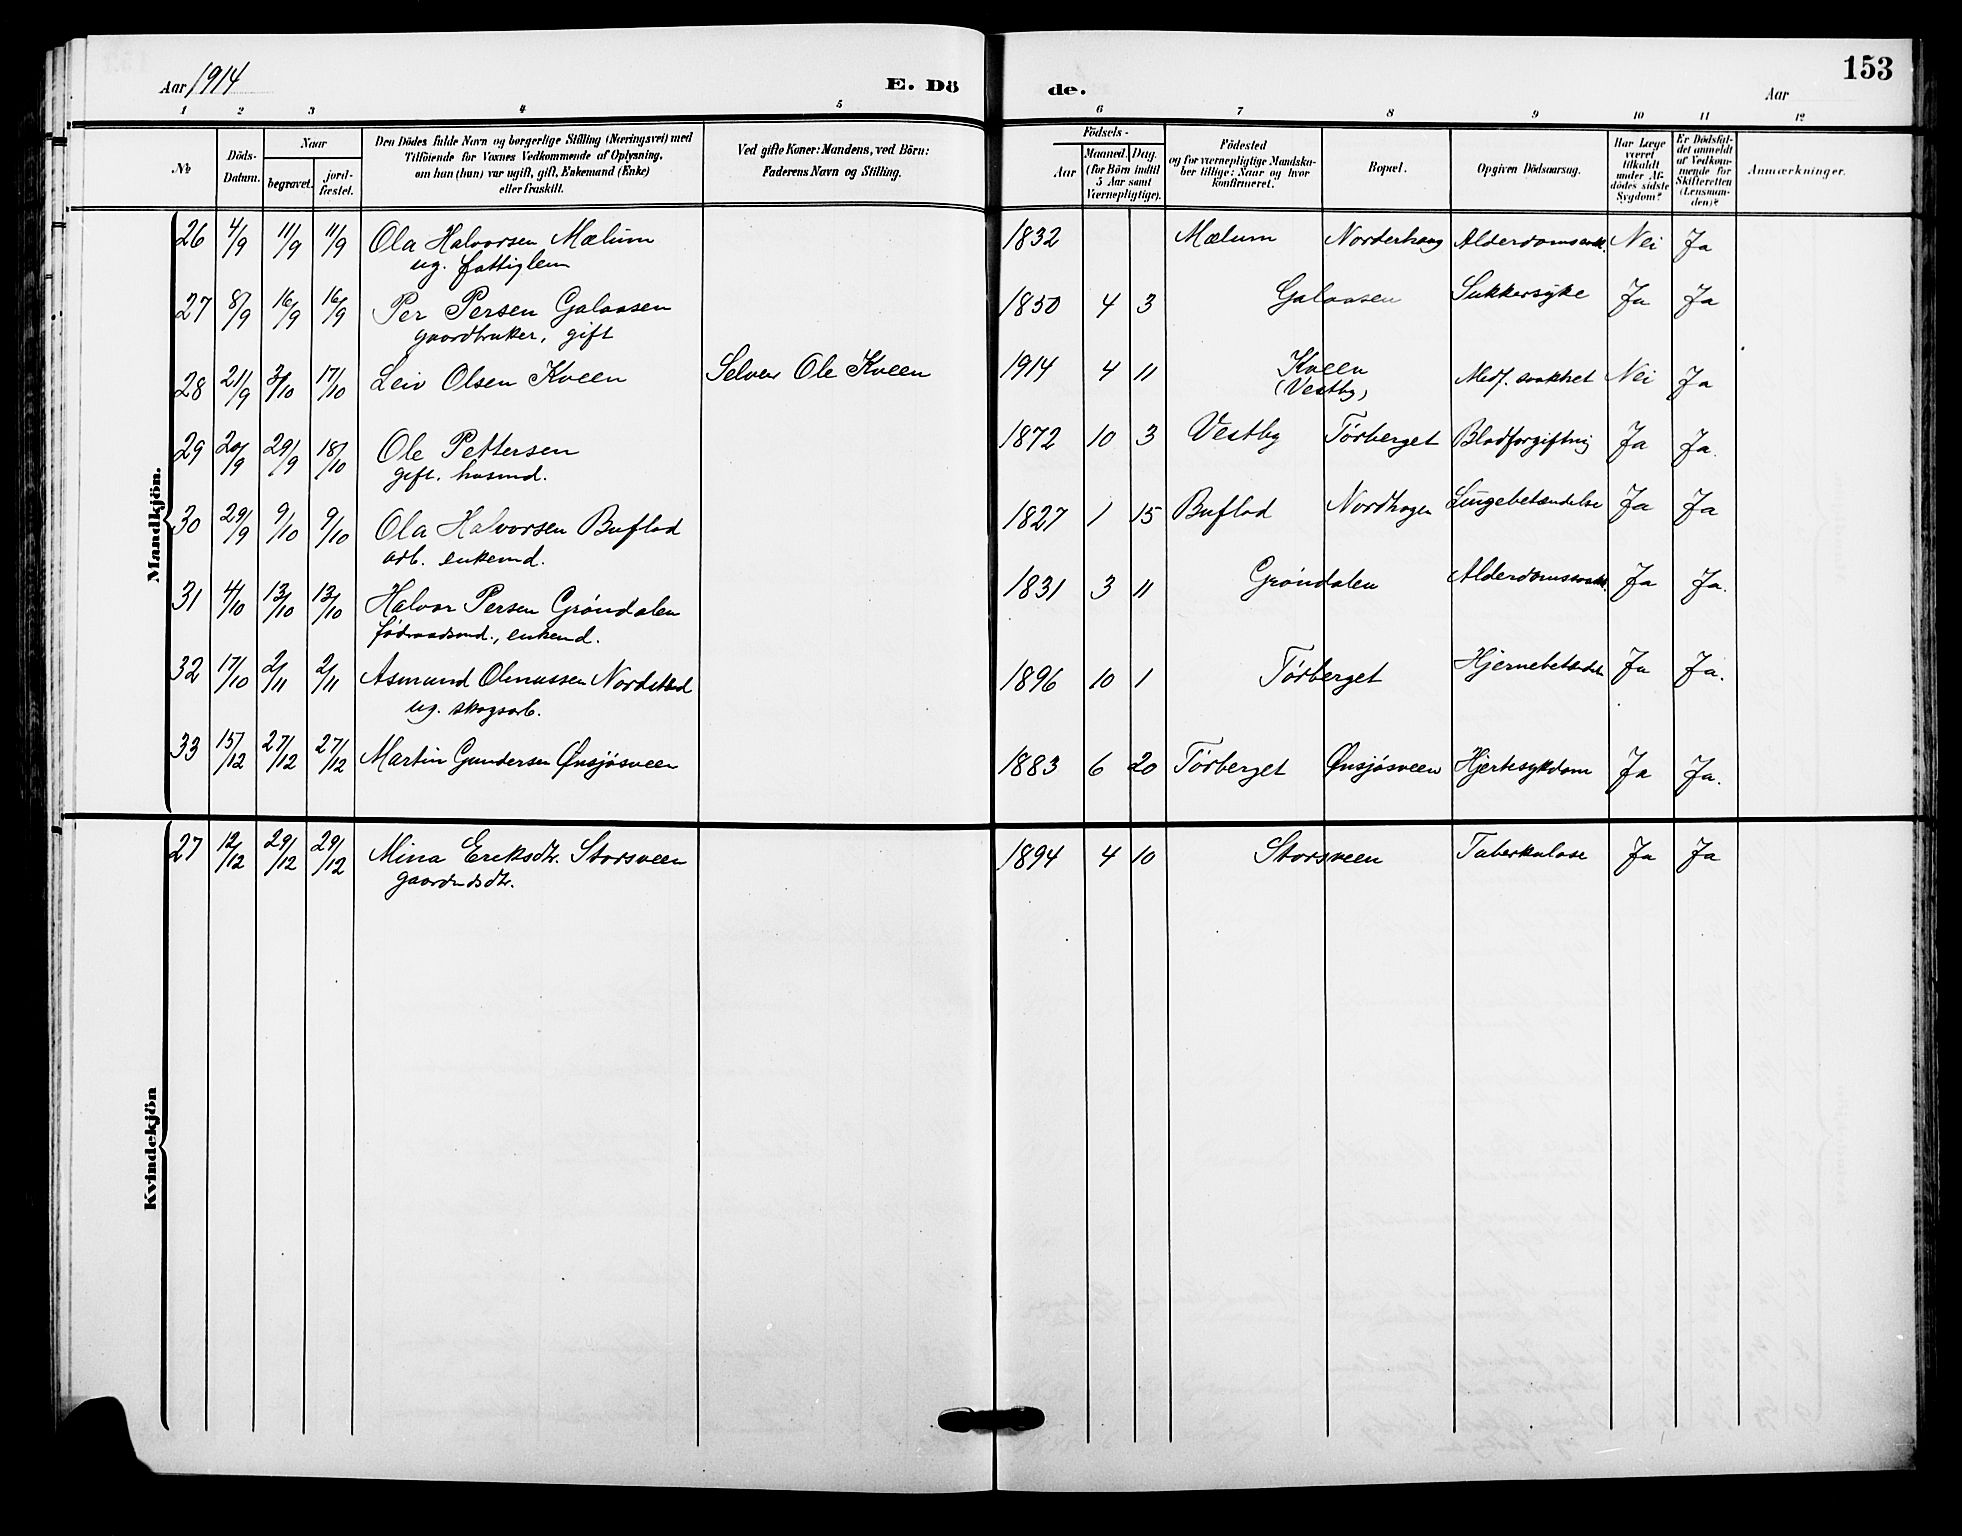 Aar 1914
E. Dö
de.
Aar
153
1 2 3 4 5 6 7 8 9 10 11 12
No
Döds-
Datum.
Naar
begravet.
jord-
fæstet.
Den Dödes fulde Navn og borgerlige Stilling (Næringsvei) med
Tilföiende for Voxnes Vedkommende af Oplysning,
om han (hun) var ugift, gift, Enkemand (Enke)
eller fraskilt.
Ved gifte Koner: Mandens, ved Börn:
Faderens Navn og Stilling.
Födsels-
Aar
Maaned. Dag.
(for Börn indtil
5 Aar samt
Værnepligtige).
Födested
og for værnepligtige Mandska-
ber tillige: Naar og hvor
konfirmeret.
Bopæl.
Opgiven Dödsaarsag.
Har Læge
været
tilkaldt
under Af-
dödes sidste
Sygdom?
Er Dödsfal-
det anmeldt
af Vedkom-
mende for
Skifteretten
(Lensman-
den)?
Anmærkninger.
Mandkjön.
26 4/9 11/9 11/9 Ola Halvorsen Mælum 1832 Mælum Norderhaug Nei Ja
ug. fattiglem
27 8/9 16/9 16/9 Per Persen Galaasen 1850 4 3 Galaasen Sukkersyke Ja Ja
gaardbruker, gift
28 21/9 3/10 17/10 Leiv Olsen Kveen Selveier Ole Kveen 1914 4 11 Kveen Medf. svakhet Nei Ja
(Vestby)
29 20/9 29/9 18/10 Ole Pettersen 1872 10 3 Vestby Tørberget Blodforgiftnig Ja Ja.
gift. husmd.
30 29/9 9/10 9/10 Ola Halvorsen Buflod 1827 1 15 Buflod Nordhagen Lungebetændelse Ja Ja
arb. enkemd.
31 4/10 13/10 13/10 Halvor Persen Grøndalen 1831 3 11 Grøndalen Ja Ja.
fødraadsmd., enkemd.
32 17/10 2/11 2/11 Asmund Olmussen 1896 10 1 Tørberget Ja Ja.
ug. skogsarb.
33 15/12 27/12 27/12 Martin Gundersen Ønsjøsveen 1883 6 20 Tørberget Ønsjøsveen Hjertesykdom Ja Ja.
Kvindekjön
27 12/12 29/12 29/12 Mina Eriksdtr. Storsveen 1894 4 10 Storsveen Tuberkulose Ja Ja
gaardmdsdtr.